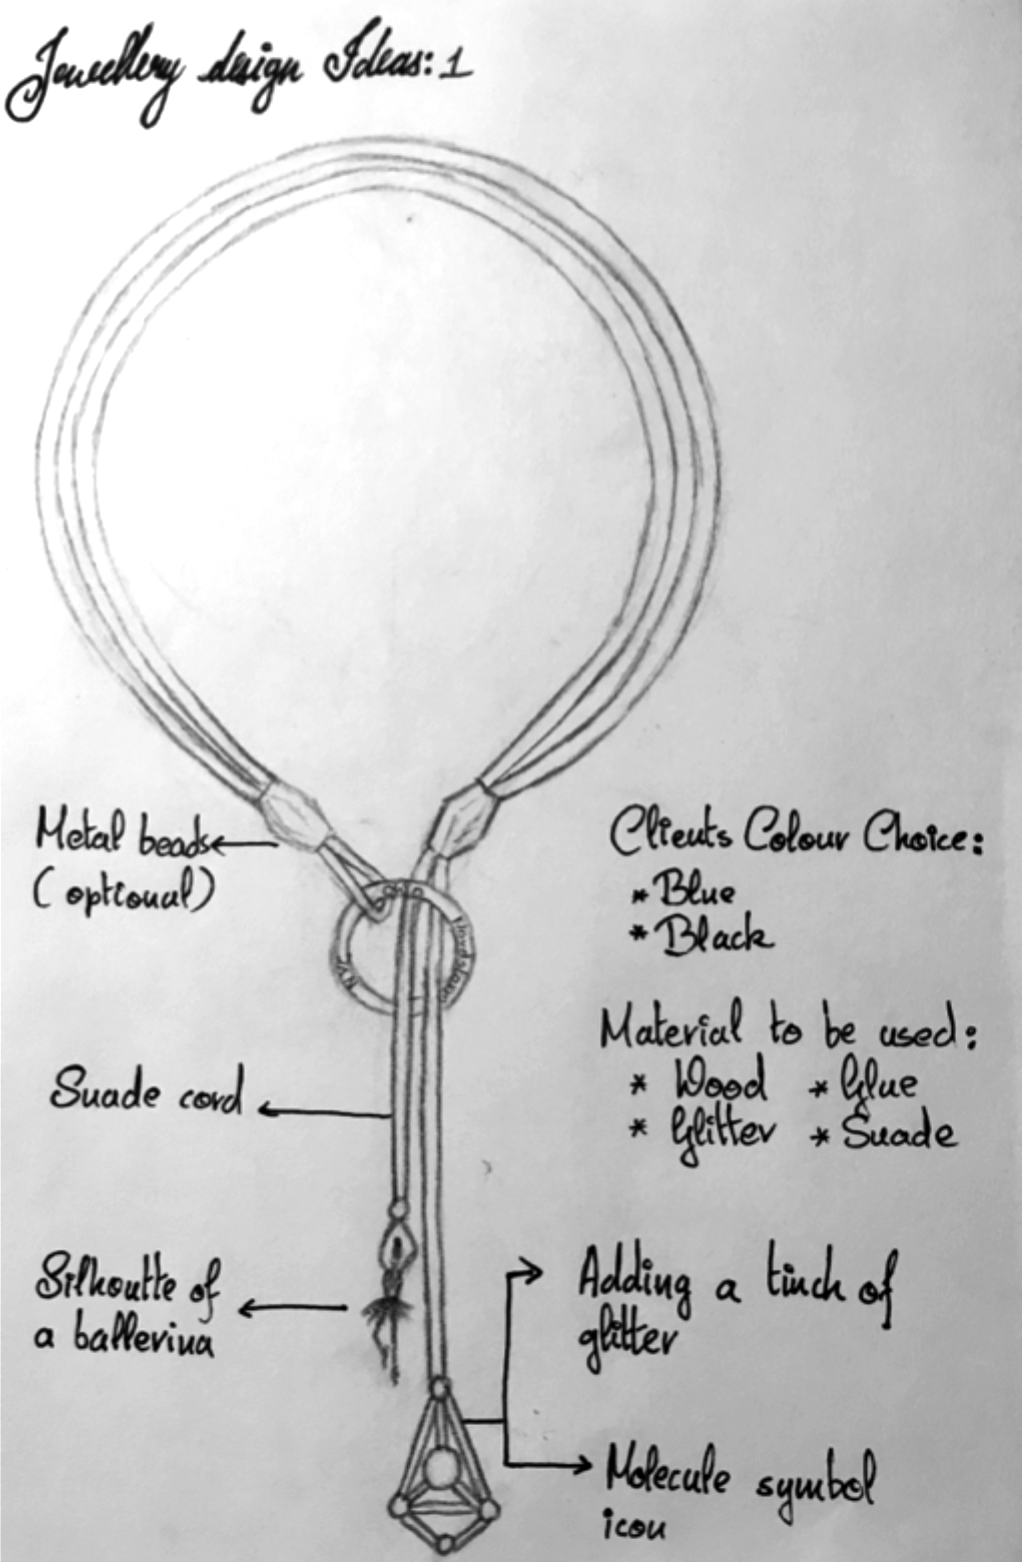 Jewellery design Ideas: 1
Metal beads
(optional)
Clients Colour Choice:
* Blue
* Black
Material to be used:
* Wood * Glue
* Glitter * Suade
Suade cord
Silhoutte of
a ballerina
Adding a tinch of
glitter
Molecule symbol
icon